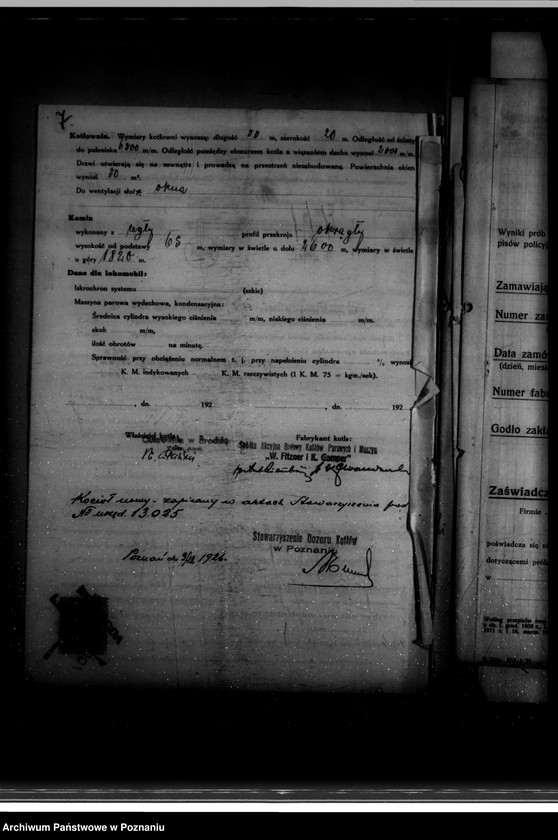 7.
Kotłownia. Wymiary kotłowni wynoszą: długość 20 m, szerokość 20 m. Odległość od ściany
do paleniska 6800 m/m. Odległość pomiędzy obmurzem kotła a wiązaniem dachu wynosi m/m.
Drzwi otwierają się na zewnątrz i prowadzą na przestrzeń niezabudowaną. Powierzchnia okien
wynosi 80 m².
Do wentylacji służą okna
Komin
wykonany z cegły profil przekroju okrągły
wysokość od podstawy 65 m, wymiary w świetle u dołu 2600 m, wymiary w świetle
u góry 1820 m.
Dane dla lokomobil:
Iskrochron systemu (szkic)
Maszyna parowa wydechowa, kondensacyjna:
Średnica cylindra wysokiego ciśnienia m/m, niskiego ciśnienia m/m.
skok m/m,
ilość obrotów na minutę.
Sprawność przy obciążeniu normalnem t. j. przy napełnieniu cylindra %, wynosi
K. M. indykowanych K. M. rzeczywistych (1 K. M. 75 = kgm./sek).
, dn. 192 , dn. 192
Właściciel kotła: Fabrykant kotła:
Spółka Akcyjna Budowy Kotłów Parowych i Maszyn
„W. Fitzner i K. Gamper"
Kocioł nowy - zapisany w aktach Stowarzyszenia pod
№ urzęd. 13.025
Stowarzyszenie Dozoru Kotłów
w Poznaniu
Poznań dn. 1926.
Wyniki prób
pisów policyj
Zamawiają
Numer za
Data zamó
(dzień, miesi
Numer fab
Godło zakł
Zaświadcz
Firmie
poświadcza się ni
dotyczącemi prób
w
Archiwum Państwowe w Poznaniu